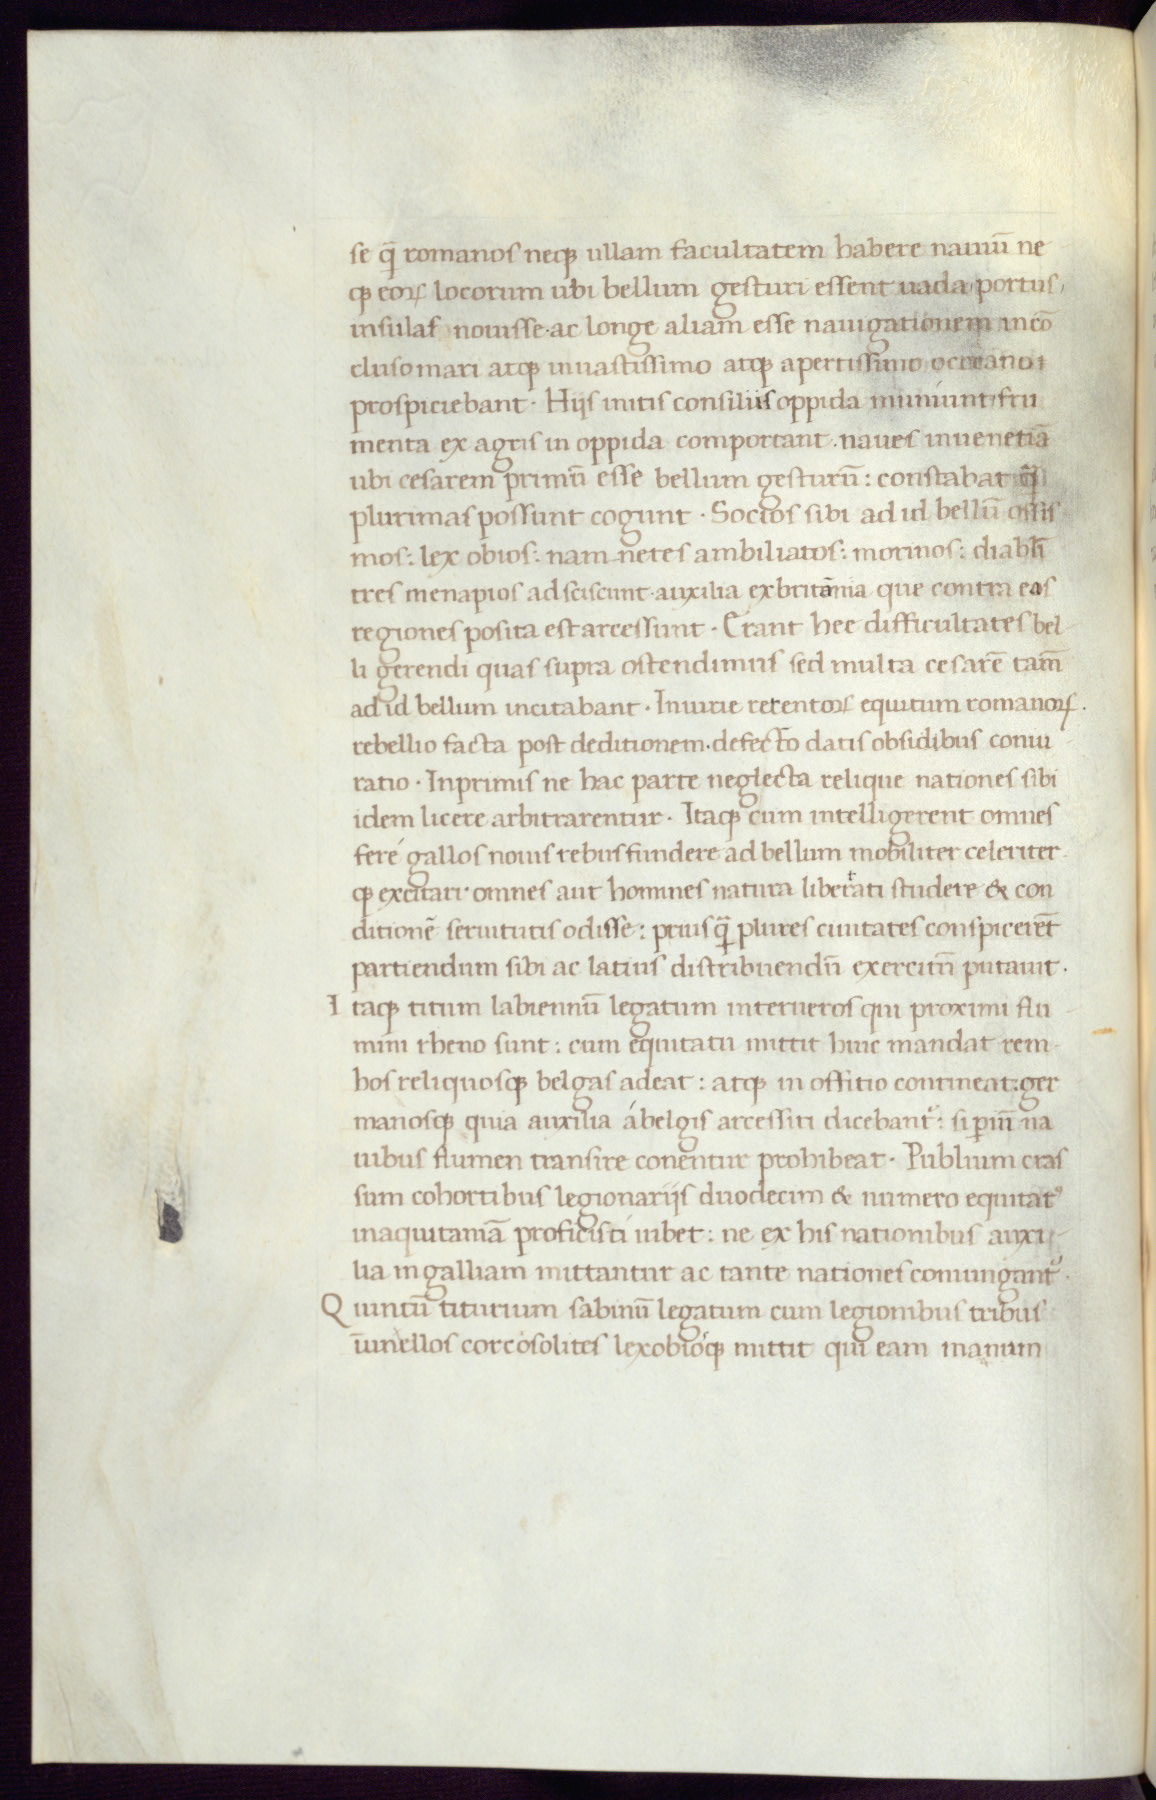 se q̃ romanos neqꝫ ullam facultatem habere nauiū ne
qꝫ eoꝝ locorum ubi bellum gesturi essent uada portus,
insulas nouisse·ac longe aliam esse nauigationem in cō
cluso mari atqꝫ in uastissimo atqꝫ apertissimo occeano·
prospiciebant · Hijs initis consiliis oppida muniunt fru
menta ex agris in oppida comportant . naues in uenetiā
ubi cesarem primū esse bellum gesturū : constabat q̃
plurimas possunt cogunt · Socios sibi ad id bellū ossis
mos : lex obios : nam netes ambiliatos : morinos : diabli
tres menapios ad sciscunt · auxilia ex britānia que contra eas
regiones posita est arcessunt · Erant hee difficultates bel
li gerendi quas supra ostendimus sed multa cesarē tam̄
ad id bellum incitabant · Iniurie retentoꝝ equitum romanoꝝ .
rebellio facta post deditionem · defectio datis obsidibus coniu
ratio · Inprimis ne hac parte neglecta relique nationes sibi
idem licere arbitrarentur · Itaqꝫ cum intelligerent omnes
feré gallos nouis rebus fundere ad bellum mobiliter celeriter
qꝫ excitari · omnes aut homines natura libertati studere & con
ditionē seruitutis odisse : prius q̃ plures ciuitates conspicerēt
partiendum sibi ac latius distribuendū exercitū putauit .
Itaqꝫ titum labiennū legatum interueros qui proximi flu
mini rheno sunt : cum equitatu mittit huic mandat rem
hos reliquosqꝫ belgas adeat : atqꝫ in offitio contineat : ger
manosqꝫ quia auxilia á belgis arcessiti dicebantᷣ : si p̱ uiū na
uibus flumen transire conentur prohibeat · Publium cras
sum cohortibus legionarijs duodecim & numero equitatꝰ
in aquitaniā proficisci iubet : ne ex his nationibus auxi
lia in galliam mittantur ac tante nationes coniungantᷣ .
Quintū titurium sabinū legatum cum legionibus tribus
ūnellos corcosolites lexobióqꝫ mittit qui eam manum